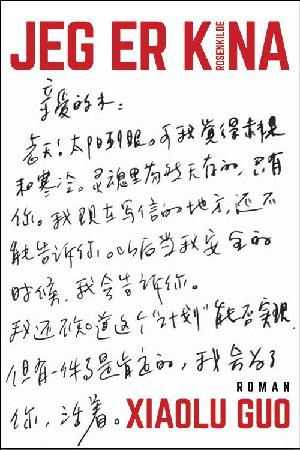 JEG ER KINA
ROSENKILDE
亲爱的木:
老天!太阳刺眼。可我觉得赤裸
和寒冷。灵魂里荡然无存的,只有
你。我现在写信的地方,还不
能告诉你。以后当我安全的
时候,我会告诉你。
我还不知道这个"计划"能否实现,
但有一件事是肯定的,我会为了
你,活着。
ROMAN
XIAOLU GUO